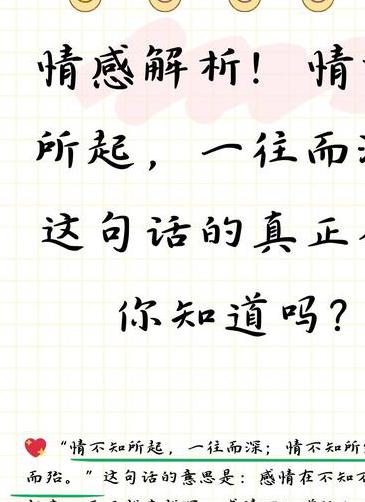 情感解析！情
所起，一往而
这句话的真正
你知道吗？
“情不知所起，一往而深；情不知所
而殆。”这句话的意思是：感情在不知不